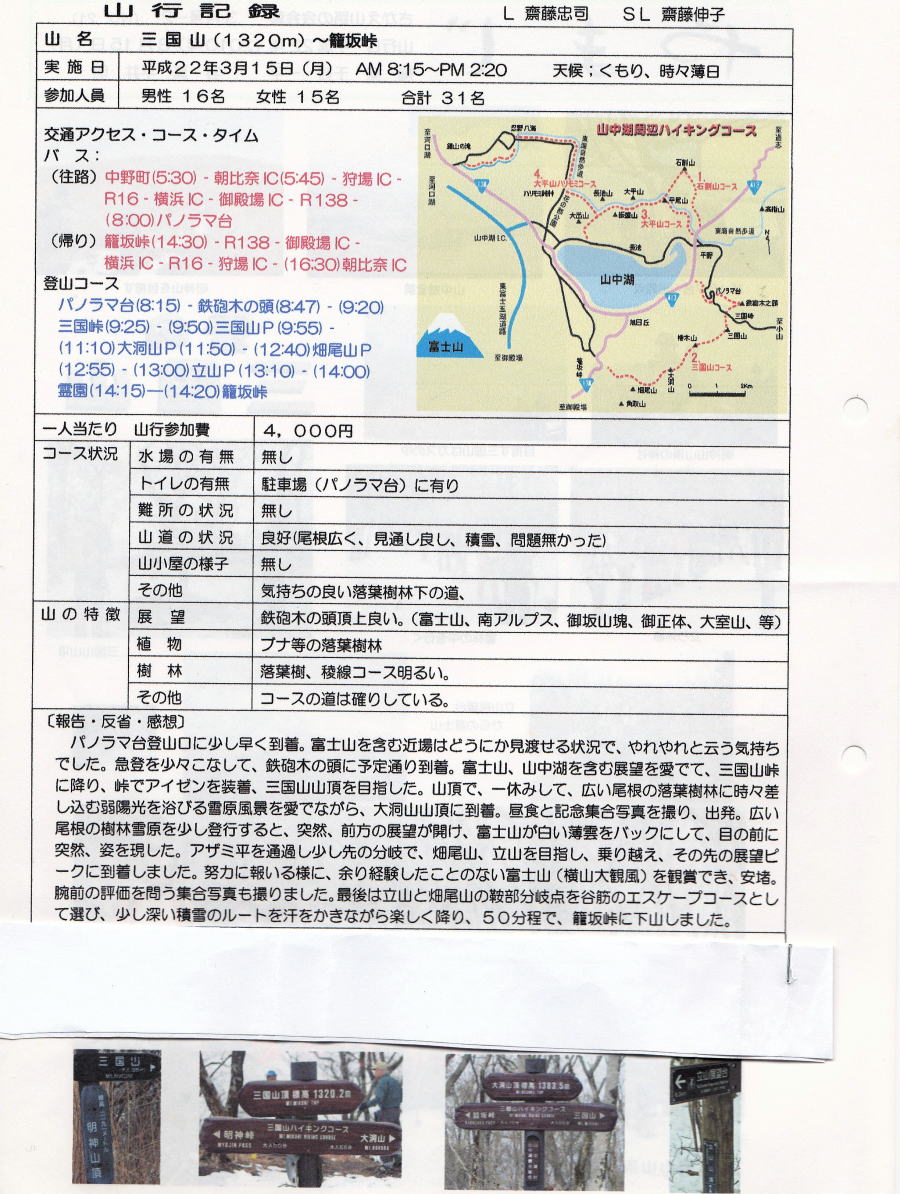 山行記録
L 齋藤忠司 SL 齋藤伸子
山名 三国山(1320m)～籠坂峠
実施日 平成22年3月15日(月) AM 8:15～PM 2:20 天候；くもり、時々薄日
参加人員 男性 16名 女性 15名 合計 31名
交通アクセス・コース・タイム
バス：
(往路) 中野町(5:30) - 朝比奈IC(5:45) - 狩場IC -
R16 - 横浜IC - 御殿場IC - R138 -
(8:00)パノラマ台
(帰り) 籠坂峠(14:30) - R138 - 御殿場IC -
横浜IC - R16 - 狩場IC - (16:30)朝比奈IC
登山コース
パノラマ台(8:15) - 鉄砲木の頭(8:47) - (9:20)
三国峠(9:25) - (9:50)三国山P(9:55) -
(11:10)大洞山P(11:50) - (12:40)畑尾山P
(12:55) - (13:00)立山P(13:10) - (14:00)
霊園(14:15)―(14:20)籠坂峠
山中湖周辺ハイキングコース
至河口湖
忍野八海
鐘山の滝
東海自然歩道
至道志
石割山
1.
石割山コース
4.
大平山ハリモミコース
ハリモミ純林
長池山
大平山
平尾山
大出山
飯盛山
3.
大平山コース
高指山
東海自然歩道
至河口湖
山中湖I.C.
長池
平野
山中湖
パノラマ台
鉄砲木之頭
三国峠
至小山
旭日丘
三国山
楢木山
2.
三国山コース
東富士五湖道路
富士山
至御殿場
籠坂峠
大洞山
畑尾山
角取山
至御殿場
0 1 2Km
一人当たり 山行参加費 4，000円
コース状況 水場の有無 無し
トイレの有無 駐車場（パノラマ台）に有り
難所の状況 無し
山道の状況 良好(尾根広く、見通し良し、積雪、問題無かった)
山小屋の様子 無し
その他 気持ちの良い落葉樹林下の道、
山の特徴 展望 鉄砲木の頭頂上良い。(富士山、南アルプス、御坂山塊、御正体、大室山、等)
植物 ブナ等の落葉樹林
樹林 落葉樹、稜線コース明るい。
その他 コースの道は確りしている。
〔報告・反省・感想〕
パノラマ台登山口に少し早く到着。富士山を含む近場はどうにか見渡せる状況で、やれやれと云う気持ち
でした。急登を少々こなして、鉄砲木の頭に予定通り到着。富士山、山中湖を含む展望を愛でて、三国山峠
に降り、峠でアイゼンを装着、三国山山頂を目指した。山頂で、一休みして、広い尾根の落葉樹林に時々差
し込む弱陽光を浴びる雪原風景を愛でながら、大洞山山頂に到着。昼食と記念集合写真を撮り、出発。広い
尾根の樹林雪原を少し登行すると、突然、前方の展望が開け、富士山が白い薄雲をバックにして、目の前に
突然、姿を現した。アザミ平を通過し少し先の分岐で、畑尾山、立山を目指し、乗り越え、その先の展望ピ
ークに到着しました。努力に報いる様に、余り経験したことのない富士山（横山大観風）を観賞でき、安堵。
腕前の評価を問う集合写真も撮りました。最後は立山と畑尾山の鞍部分岐点を谷筋のエスケープコースとし
て選び、少し深い積雪のルートを汗をかきながら楽しく降り、50分程で、籠坂峠に下山しました。
三国山
明神山頂
三国山頂 標高 1320.2m
三国山ハイキングコース
明神峠 大洞山
MYOJIN PASS
大洞山頂 標高 1383.5m
三国山ハイキングコース
籠坂峠 三国山
立山展望台